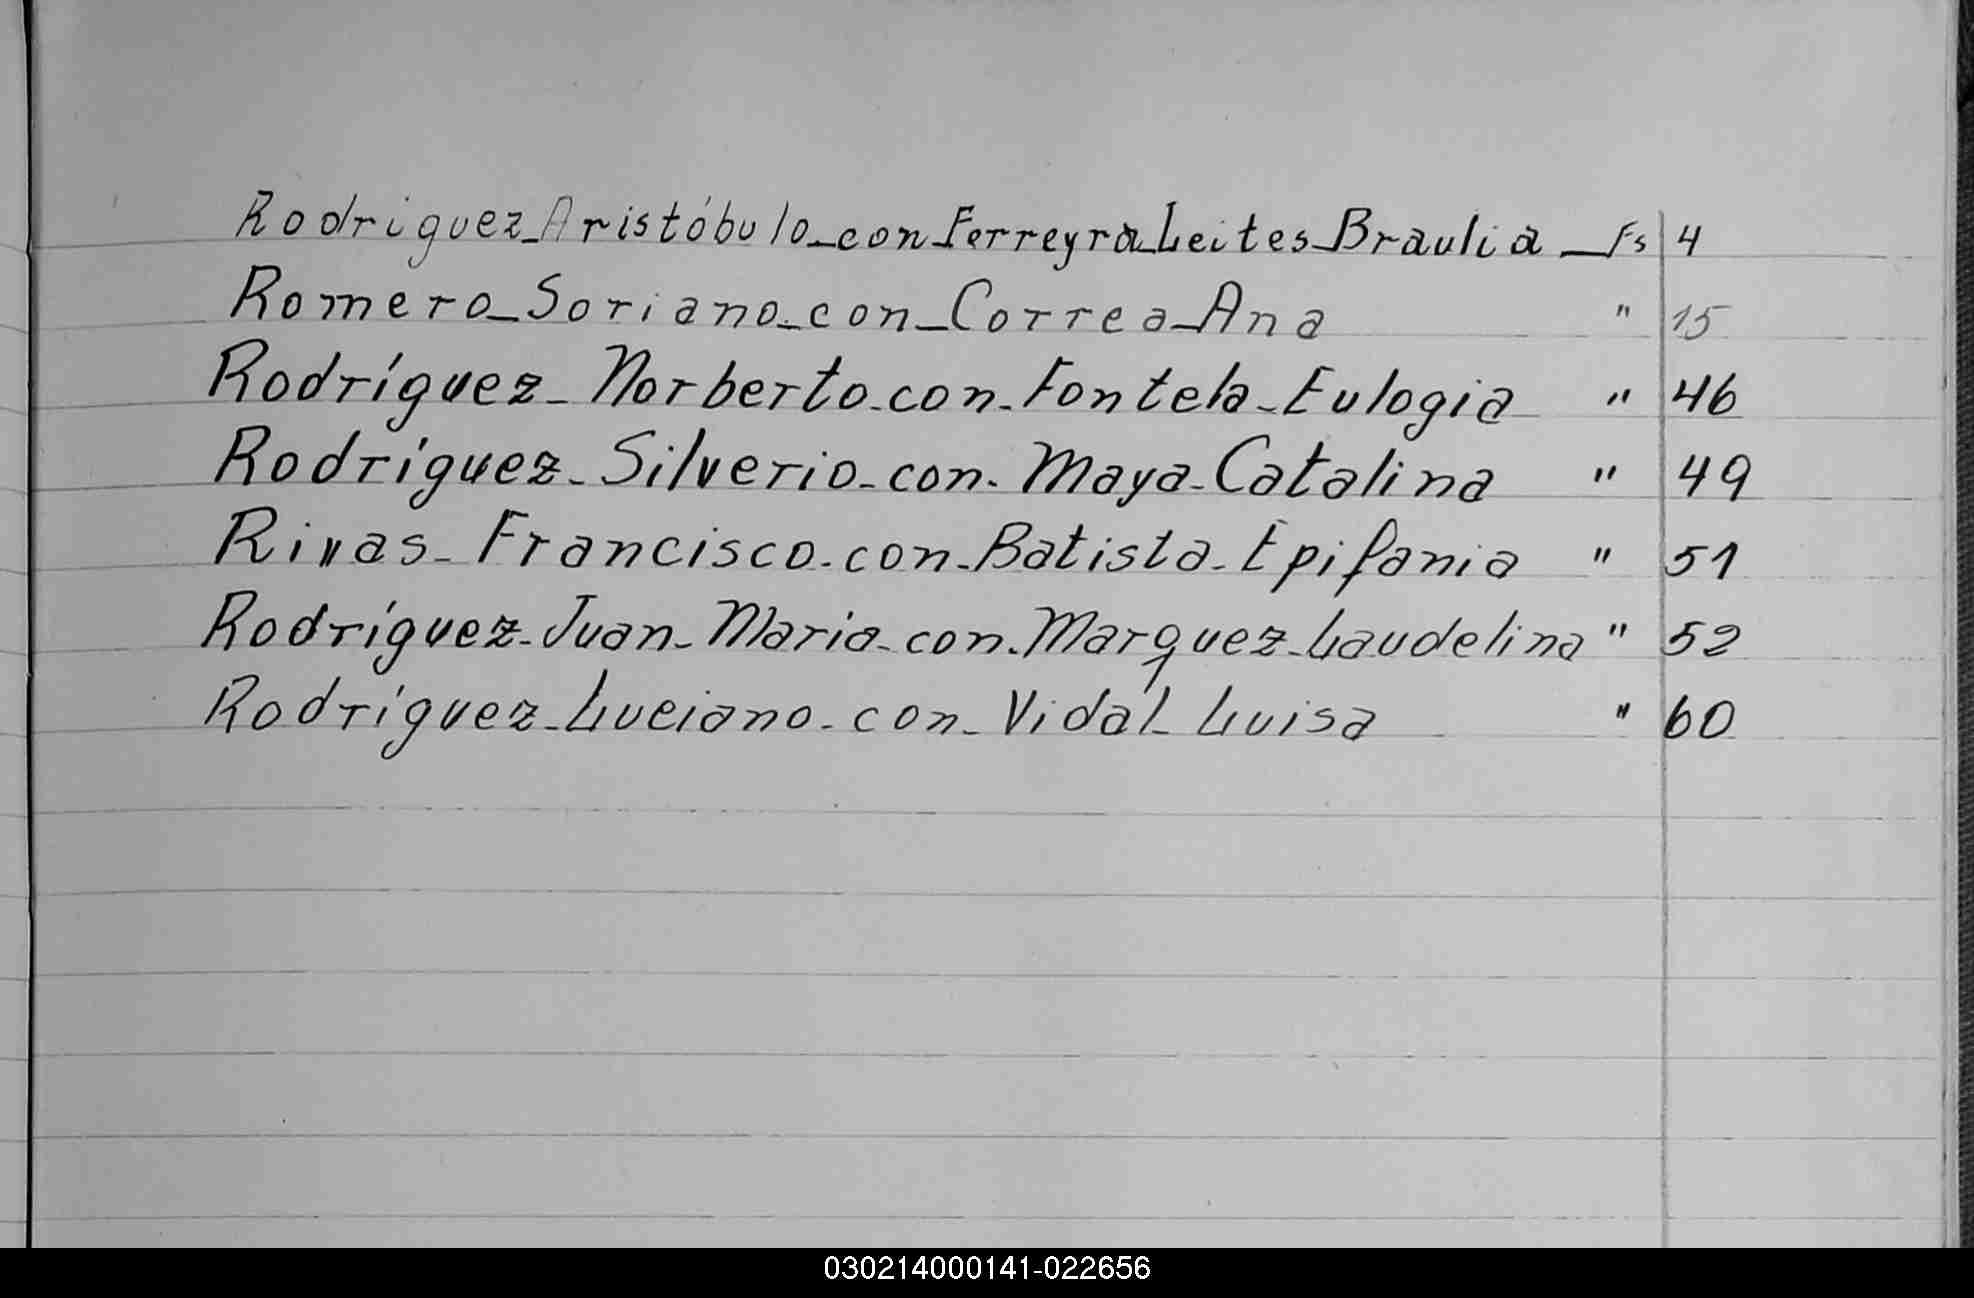 Rodriguez_Aristóbulo_con_Ferreyra_Leites_Braulia_Fs 4
Romero_Soriano_con_Correa_Ana " 15
Rodríguez_Norberto_con_Fontela_Eulogia " 46
Rodríguez_Silverio_con_Maya_Catalina " 49
Rivas_Francisco_con_Batista_Epifania " 51
Rodríguez_Juan_Maria_con_Marquez_Laudelina " 52
Rodríguez_Luciano_con_Vidal_Luisa " 60
030214000141-022656